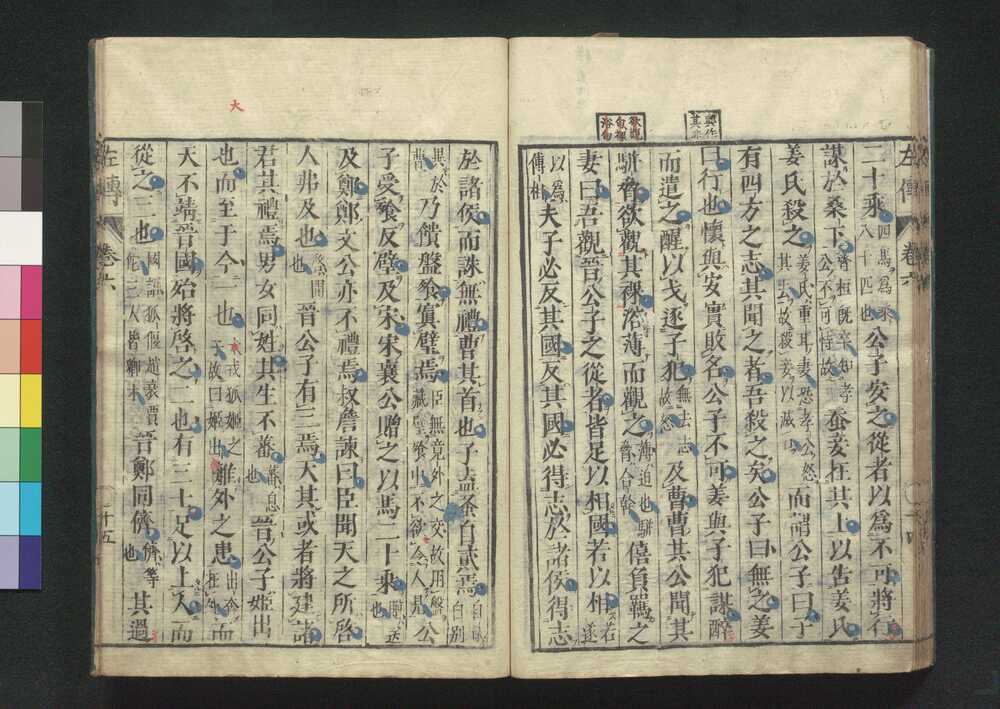 欲觀句裸浴句
二十乘四馬爲乘八十匹也公子安之從者以爲不可將行
謀於桑下齊桓旣卒知孝公不可恃故蚕妾在其上以告姜氏
姜氏殺之姜氏重耳妻恐孝公怒其去故殺妾以滅口而謂公子曰子
有四方之志其聞之者吾殺之矣公子曰無之姜
曰行也懷與安實敗名公子不可姜與子犯謀醉
而遣之醒以戈逐子犯無去志故怒及曹曹共公聞其
駢脅欲觀其裸浴薄而觀之薄迫也駢脅合幹僖負羈之
妻曰吾觀晉公子之從者皆足以相國若以相若遂
以爲傅相夫子必反其國反其國必得志於諸侯得志
於諸侯而誅無禮曹其首也子盍蚤自貳焉自貳自別
異於曹乃饋盤飧寘璧焉臣無竟外之交故用盤藏璧飧中不欲令人見公
子受飧反璧及宋宋襄公贈之以馬二十乘贈送也
及鄭鄭文公亦不禮焉叔詹諫曰臣聞天之所啓
人弗及也啓開也晉公子有三焉天其或者將建諸
君其禮焉男女同姓其生不蕃蕃息也晉公子姬出
也而至于今一也大戎狐姬之子故曰姬出離外之患出奔在外而
天不靖晉國殆將啓之二也有三士足以上人而
從之三也國語狐偃趙衰賈佗三人皆卿才晉鄭同儕儕等也其過
大
左傳 卷六 十五
左傳 卷六